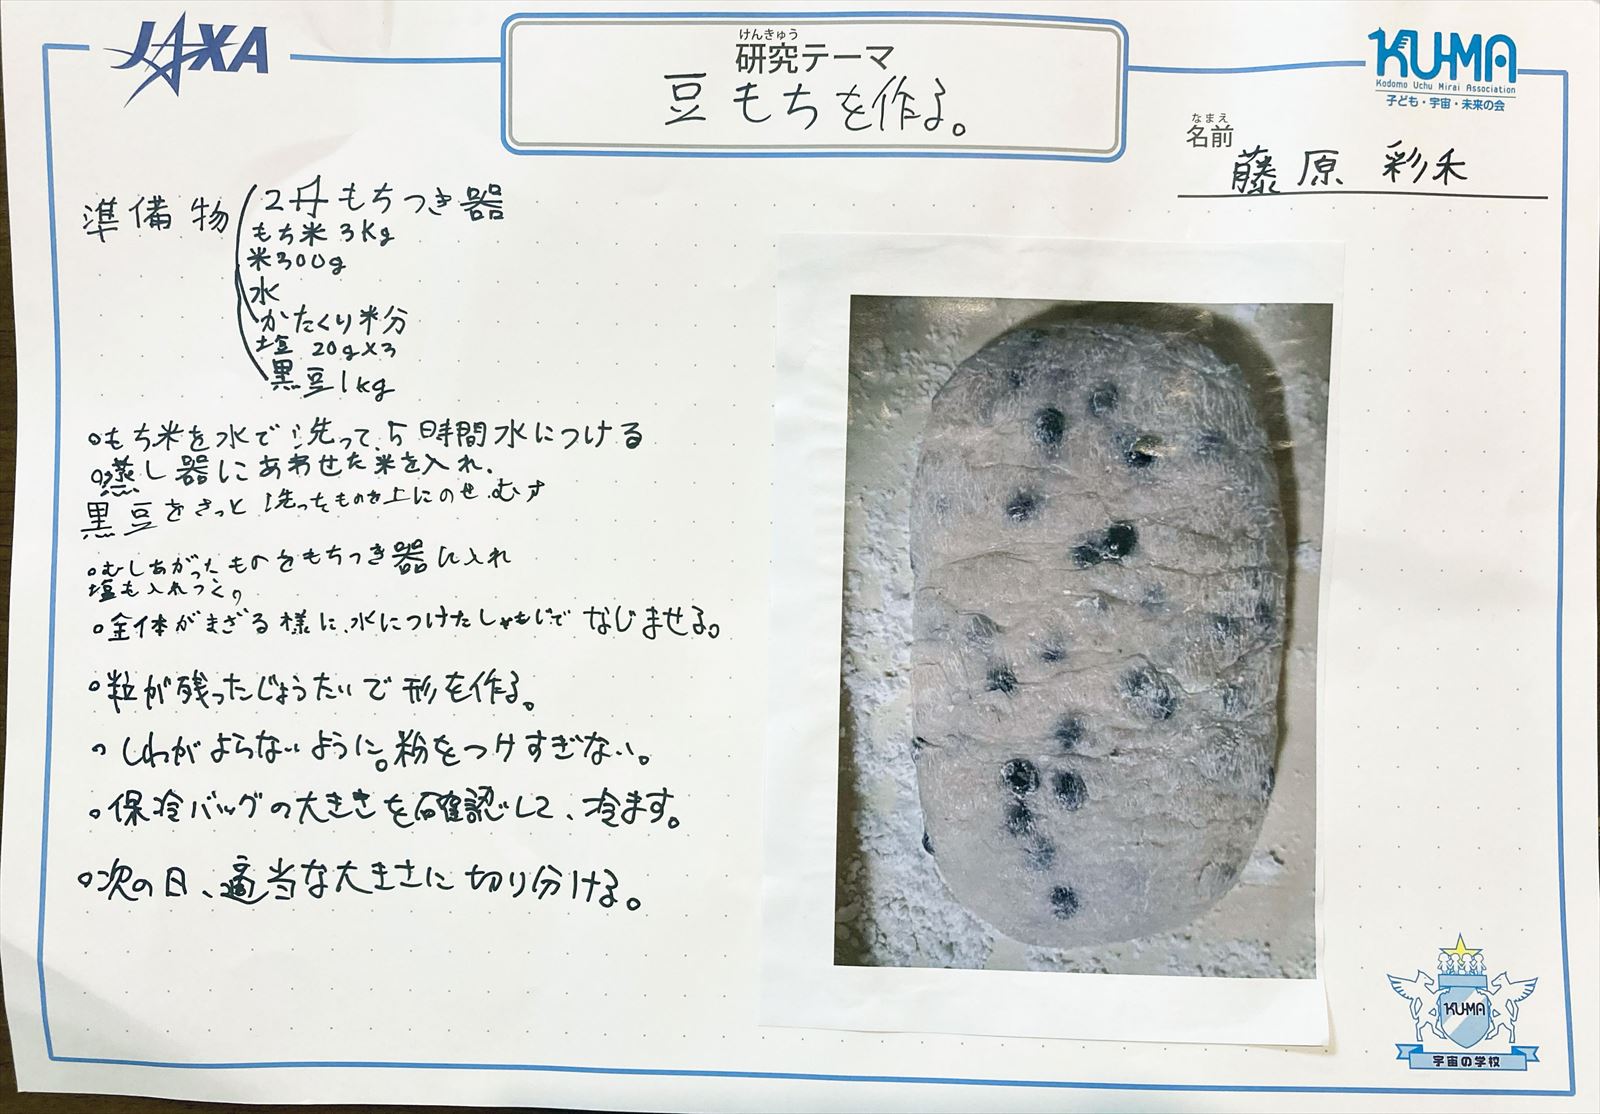 JAXA
けんきゅう
研究テーマ
豆もちを作る。
KUMA
Kodomo Uchu Mirai Association
子ども・宇宙・未来の会
なまえ
名前
藤原 彩禾
準備物
2升もちつき器
もち米 3Kg
米300g
水
かたくり半分
塩 20g×3
黒豆1kg
○もち米を水で洗って、5時間水につける
○蒸し器にあわせた米を入れ、
黒豆をさっと洗ったものを上にのせ、むす
○むしあがったものをもちつき器に入れ
塩も入れつく。
○全体がまざる様に、水につけたしゃもじでなじませる。
○粒が残ったじょうたいで形を作る。
○しわがよらないように。粉をつけすぎない。
○保冷バッグの大きさを確認して、冷ます。
○次の日、適当な大きさに切り分ける。
KUMA
宇宙の学校